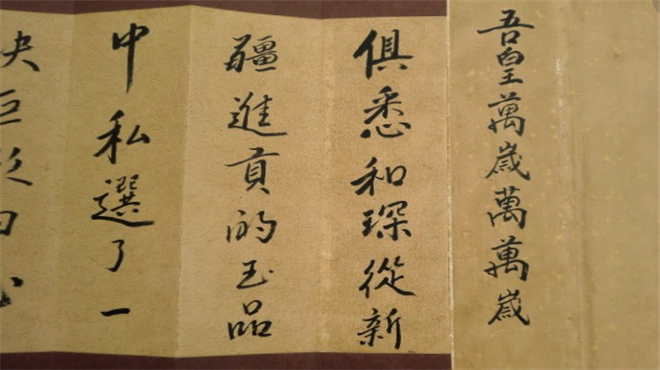 吾皇萬嵗萬萬嵗
俱悉和琛從新
疆進貢的玉品
中私選了一